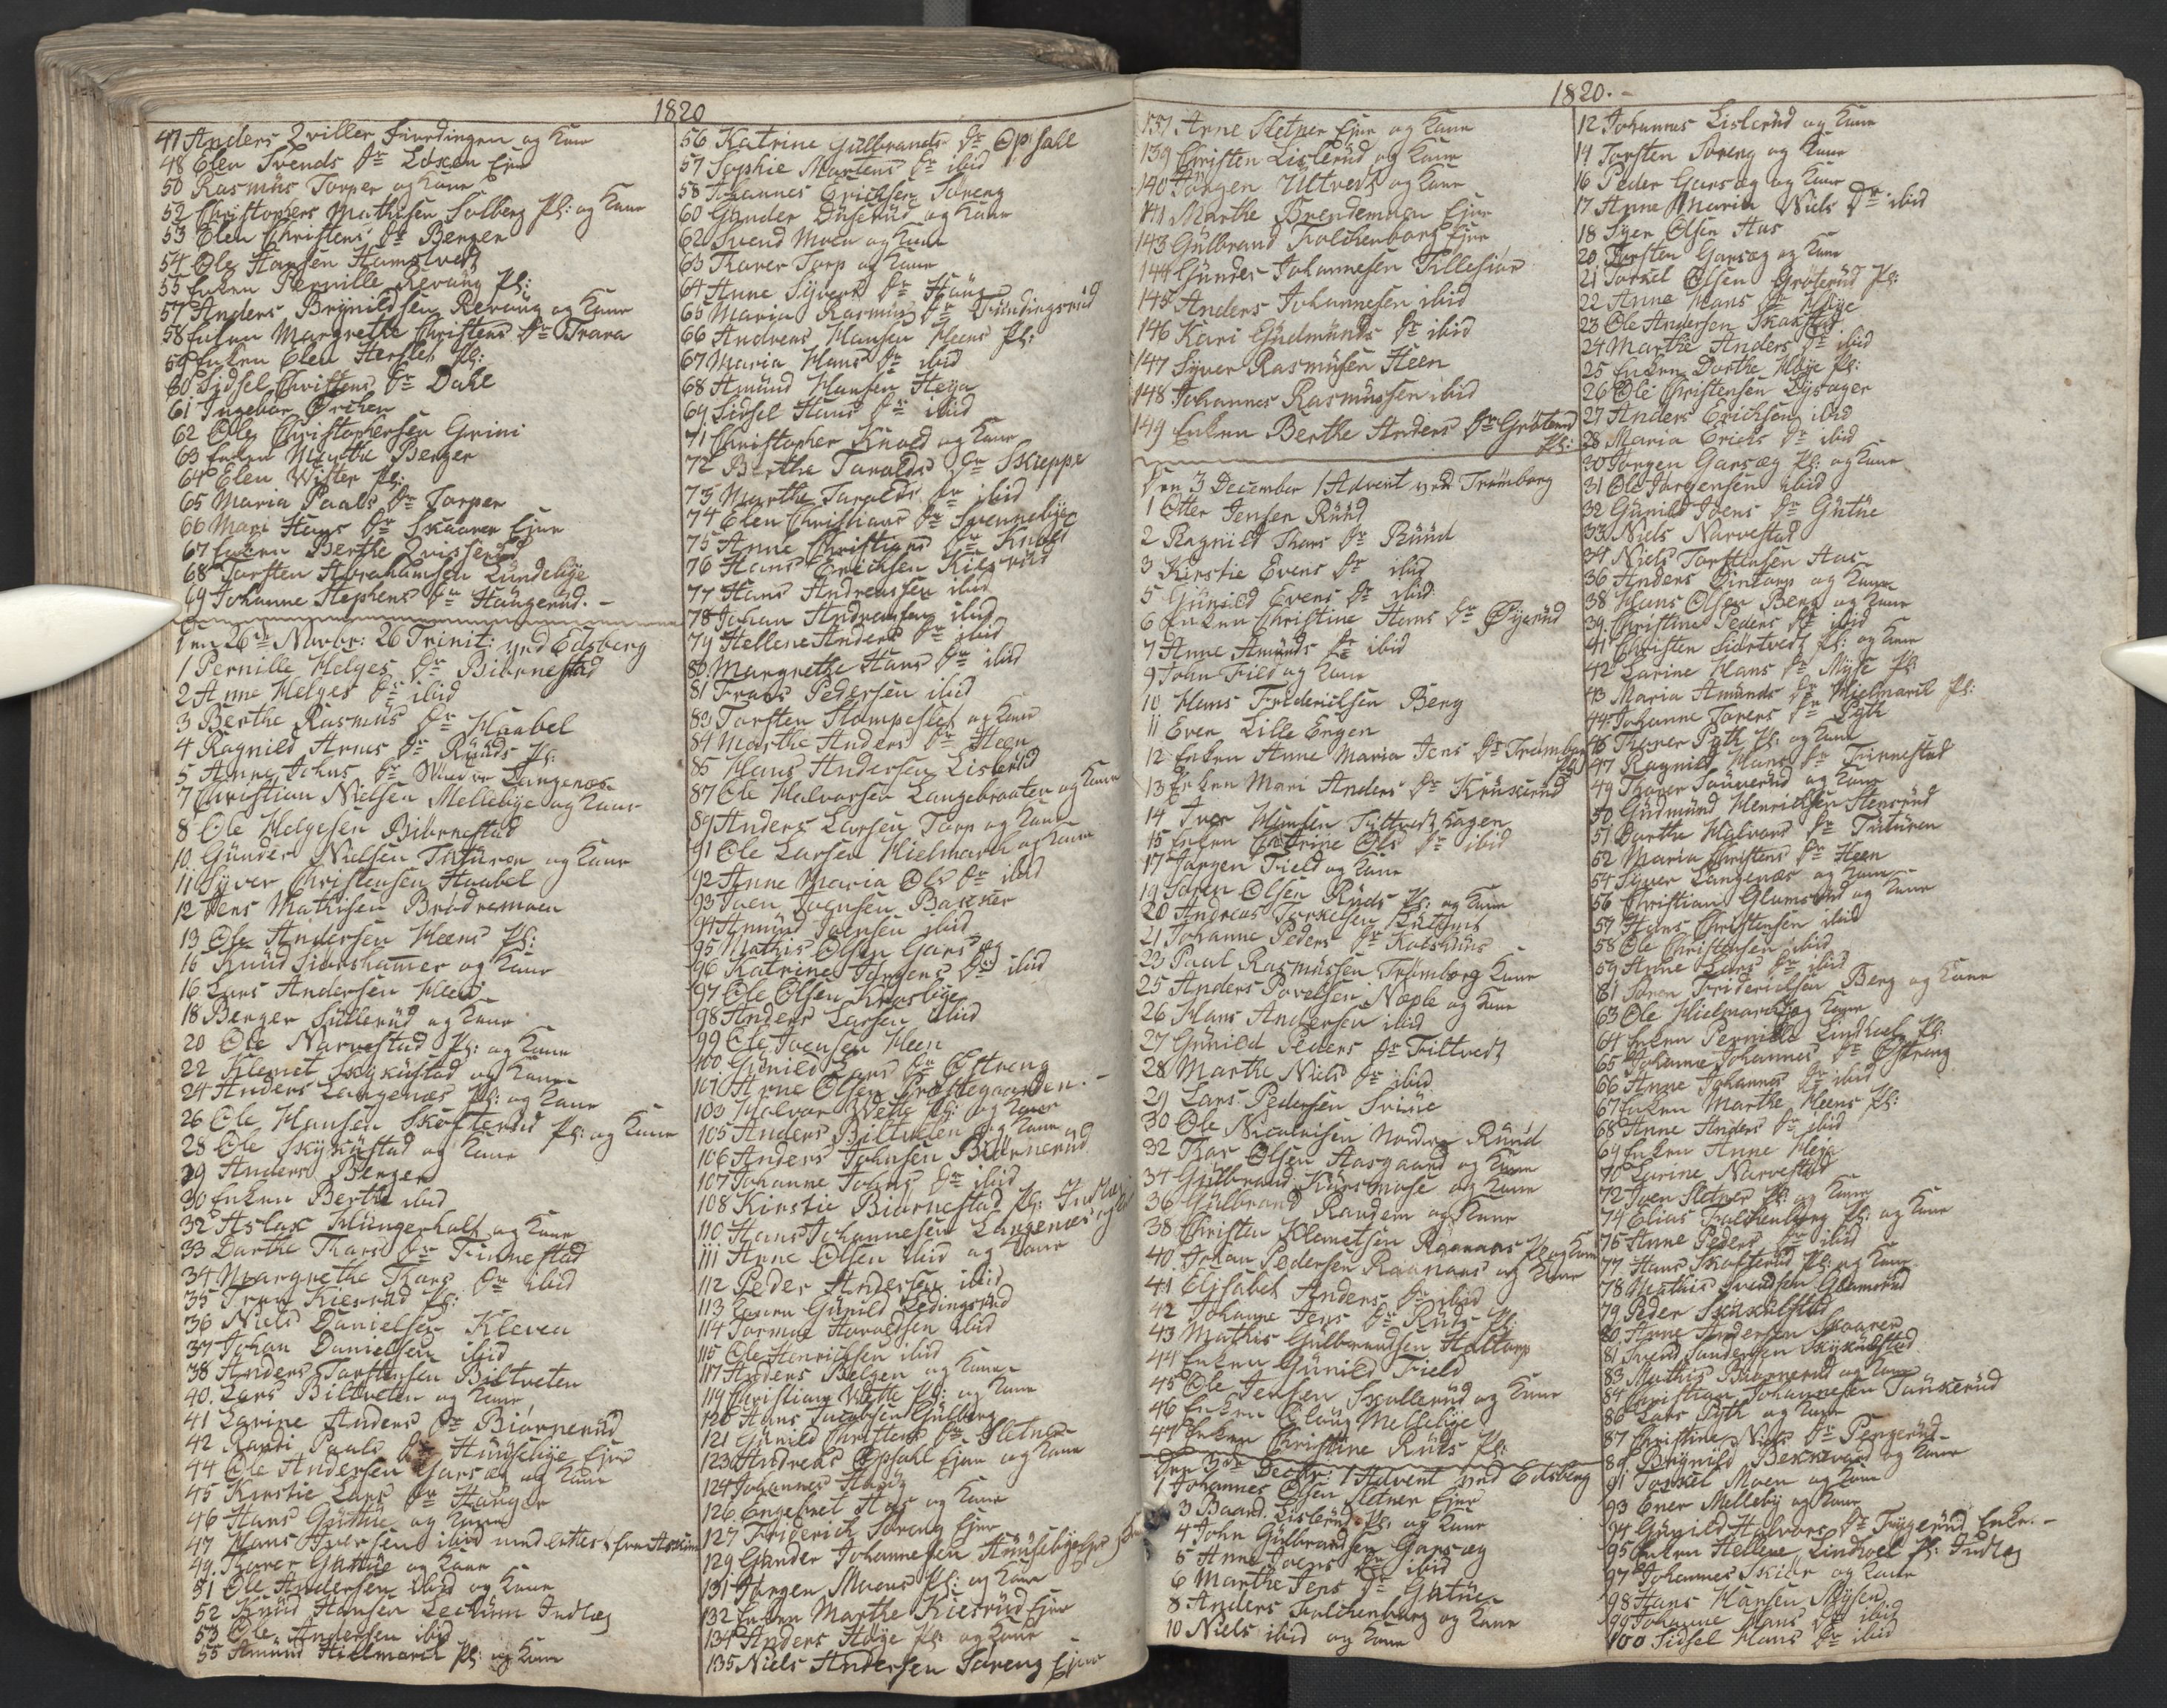 1820
47 Anders Qviller Fiordingen og Kone
48 Elen Svends Dr Løken Ejer
50 Rasmus Torper og Kone
52 Christophers Mathisen Solberg Pl: og Kone
53 Elen Christens Dr Berger
54 Ole Hansen Hamstvedt
55 Enken Pernille Revoug Pl:
57 Anders Brynildsen Revoug og Kone
58 Enken Margrethe Christens Dr Trara
59 Enken Elen Hersleb Pl:
60 Sidsel Christens Dr Dahl
61 Ingebor Ørchen
62 Ole Christophersen Grini
63 Enken Marthe Berger
64 Elen Wister Pl:
65 Maria Paals Dr Torper
66 Mari Hans Dr Skaarer Ejer
67 Enken Berthe Qvisserud
68 Torsten Abrahamsen Lundebye
69 Johanne Stephens Dr Haugerud. -
Den 26de Novbr: 26 Trinit: ved Edsberg
1 Pernille Helges Dr Biørnestad
2 Anne Helges Dr ibid
3 Berthe Rasmus Dr Haabel
4 Ragnild Arnes Dr Ruuds Pl:
5 Anne Johns Dr Langenæs
7 Christian Nielsen Mellebye og Kone
8 Ole Helgesen Biørnestad
10 Gunder Nielsen Tuturen og Kone
11 Syver Christensen Haabel
12 Jens Mathisen Brødremoen
13 Ole Andersen Heens Pl:
15 Knud Siorshammer og Kone
16 Lars Andersen Heen
18 Berger Sullerud og Kone
20 Ole Narvestad Pl: og Kone
22 Klemet Skykustad og Kone
24 Anders Langenæs Pl: og Kone
26 Ole Hansen Skofterud Pl: og Kone
28 Ole Skykustad og Kone
29 Anders Berger
30 Enken Berthe ibid
32 Aslak Klungerholt og Kone
33 Dorthe Thors Dr Finnestad
34 Margrethe Thors Dr ibid
35 Tron Kiesrud Pl:
36 Niels Danielsen Kleven
37 Johan Danielsen ibid
38 Anders Torstensen Biltveten
40. Lars Biltveten og Kone
41 Karine Anders Dr Biørnerud
42 Randi Paals Dr Huusebye Ejer
44 Ole Andersen Garsæg og Kone
45 Kirstie Lars Dr Haugen
46 Hans Guttue og Kone
47 Hans Iversen ibid med Attest fra Askim
49. Thorer Guttue og Kone
51 Ole Andersen ibid og Kone
52 Knud Hansen Leckum Indlæg
53 Ole Andersen ibid
55 Amund Hielmarck Pl: og Kone
56 Katrine Gulbrands Dr Opsahl
57 Sophie Martens Dr ibid
58 Johannes Erichsen Søreng
60 Gunder Duserud og Kone
62 Svend Moen og Kone
63 Thorer Torp og Kone
64 Anne Syvers Dr Haug
65 Maria Rasmus Dr Tundingsrud
66 Andreas Hansen Heens Pl:
67 Maria Hans Dr ibid
68 Amund Hansen Heya
69. Sidsel Hans Dr ibid
71 Christopher Knold og Kone
72 Berthe Taralds Dr Skieppe
73 Marthe Taralds Dr ibid
74 Elen Christians Dr Svennebye
75 Anne Christians Dr Knold
76 Hans Erichsen Kilsrud
77 Hans Andreassen ibid
78 Johan Andreassen ibid
79 Hellene Anders Dr ibid
80. Margrethe Hans Dr ibid
81 Frans Pedersen ibid
83 Torsten Stompeslet og Kone
84 Marthe Anders Dr Heen
85 Hans Andersen Lislerud
87 Ole Halvorsen Langebraaten og Kone
89 Anders Larsen Torp og Kone
91 Ole Larsen Hielmarck og Kone
92 Anne Maria Ols Dr ibid
93 Joen Joensen Bakker
94 Amund Joensen ibid
95 Mathis Olsen Garsæg
96 Katrine Jørgens Dr ibid
97 Ole Olsen Krosbye
98 Anders Larsen ibid
99 Ole Joensen Heen
100 Gunild Lars Dr Østreng
101 Arne Olsen Præstegaarden. -
103 Halvor Wette Pl: og Kone
105 Anders Biltveten og Kone
106 Anders Johnsen Biørnerud
107 Johanne Johns Dr ibid
108 Kirstie Biørnestad Pl: Indlæg
110 Hans Johannesen Langenæs
111 Arne Olsen ibid og Kone
112 Peder Andersen ibid
113 Gunild Redingsrud
114 Tormoe Haraldsen ibid
115 Ole Henrichsen ibid
117 Anders Belgen og Kone
119 Christian Wette Pl: og Kone
120 Hans Jacobsen Gulberg
121 Gunild Christens Dr Sletner
123 Andreas Opsahl Ejer og Kone
124 Johannes Haug
126. Engebret Aas og Kone
127 Friderich Soreng Ejer
129 Gunder Johannesen Huusebye
131 Jørgen Moens Pl: og Kone
132 Enken Marthe Kiesrud Ejer
134 Anders Høye Pl: og Kone
135 Niels Andersen Soreng Ejer
1820. -
137 Arne Sletner Ejer og Kone
139 Christen Lislerud og Kone
140 Jørgen Ultvedt og Kone
141 Marthe Brendemoen Ejer
143 Gulbrand Folchenborg Ejer
144 Gunder Johannesen Tillesiør
145 Anders Johannesen ibid
146 Kari Gudmunds Dr ibid
147 Syver Rasmusen Heen
148 Johannes Rasmussen ibid
149 Enken Berthe Anders Dr Grøterud Pl:
Den 3 December 1 Advent ved Trømborg
1 Otter Jensen Ruud
2 Ragnild Thors Dr Ruud
3 Kirstie Evens Dr ibid
5 Gunild Evens Dr ibid
6 Enken Christine Hans Dr Øyerud
7 Anne Amunds Dr ibid
9 John Field og Kone
10 Hans Friderichsen Berg
11 Even Lille Engen
12 Enken Anne Maria Jens Dr Trømborg Pl:
13 Enken Mari Anders Dr Kruserud
14 Iver Hansen Filtvedt hagen
15 Enken Catrine Ols Dr ibid
17 Jørgen Field og Kone
19 Søren Olsen Ruds Pl: og Kone
20 Andreas Torkelsen
21 Johanne Peders Dr Katshuus
23 Paul Rasmussen Trømborg Kone
25 Anders Povelsen Næple og Kone
26 Hans Andersen ibid
27 Gunild Peders Dr Filtvedt
28 Marthe Niels Dr ibid
29 Lars Pedersen Sviue
30 Ole Nicolaisen Nordre Ruud
32 Thor Olsen Aasgaard og Kone
34 Gulbrand Kursmose og Kone
36 Gulbrand Randem og Kone
38 Christen Klemetsen Raanaas Pl: og Kone
40. Johan Pedersen Raanaas og Kone
41 Elisabet Anders Dr ibid
42 Johanne Jens Dr Ruds Pl:
43 Mathis Gulbrandsen Haltorp
44 Enken Gunild Field
45 Ole Jensen Skallerud og Kone
46 Enken Eloug Mellebye
47 Enken Christine Ruds Pl:
Den 3de Decbr: 1 Advent ved Edsberg
1 Johannes Olsen Sletner Ejer
3 Baard Lislerud Pl: og Kone
4 John Gulbrandsen Garsæg
5 Anne Joens Dr ibid
6 Marthe Jens Dr Guttue
8 Anders Folchenborg og Kone
10 Niels ibid og Kone
12 Johannes Lislerud og Kone
14 Torsten Soreng og Kone
16 Peder Garsæg og Kone
17 Anne Maria Niels Dr ibid
18 Syver Olsen Aas
20 Torsten Garsæg og Kone
21 Torkel Olsen Grøterud Pl:
22 Anne Hans Dr Høye
23 Ole Andersen Skakstad
24 Marthe Anders Dr ibid
25 Enken Dorthe Høye Pl:
26 Ole Christensen Lysager
27 Anders Erichsen ibid
28 Maria Erichs Dr ibid
30 Jørgen Garsæg Pl: og Kone
31 Ole Jørgensen ibid
32 Gunild Joens Dr Guttue
33 Niels Narvestad
34 Niels Torstensen Aas
36 Anders Dintorp og Kone
38 Hans Olsen Berg og Kone
39 Christine Peders Dr ibid
41 Christen Sidtvedt Pl: og Kone
42 Karine Hans Dr Myse Pl:
43 Maria Amunds Dr Hielmarck Pl:
44 Johanne Torers Dr Pyth
46 Thorer Pyth Pl: og Kone
47 Ragnild Hans Dr Finnestad
49 Thorer Souverud og Kone
50 Gudmund Henrichsen Stensrud
51 Dorthe Halvors Dr Tuturen
52 Maria Christens Dr Heen
54 Syver Langenæs og Kone
56 Christian Glumsrud og Kone
57 Hans Christensen ibid
58 Ole Christensen ibid
59 Anne Lars Dr ibid
61 Søren Friderichsen Berg og Kone
63 Ole Hielmarck og Kone
64 Enken Pernille Lindhoel Pl:
65 Johanne Johannes Dr Østreng
66 Anne Johannes Dr ibid
67 Enken Marthe Heens Pl:
68 Anne Anders Dr ibid
69 Enken Anne Heja
70 Karine Narvestad
72 Joen Sletner Pl: og Kone
74 Elias Folchenborg Pl: og Kone
75 Anne Peders Dr ibid
77 Hans Skofterud Pl: og Kone
78 Mathis Svendsen Glumsrud
79 Peder Skykulstad
80. Arne Andersen Skaarer
81 Svend Andersen Skykulstad
83 Mathis Biørnerud og Kone
84 Christian Johannesen Tuuserud
86 Lars Pyth og Kone
87 Christine Niels Dr Pengerud
89 Brynild Bekkevar og Kone
91 Torkel Moen og Kone
93 Ener Melleby og Kone
94 Gunild Halvors Dr Frygerud Enke. -
95 Enken Hellene Lindhoel Pl: Indlæg
97 Johannes Skiør og Kone
98 Hans Hansen Mysen
99 Johanne Hans Dr ibid
100 Sidsel Hans Dr ibid